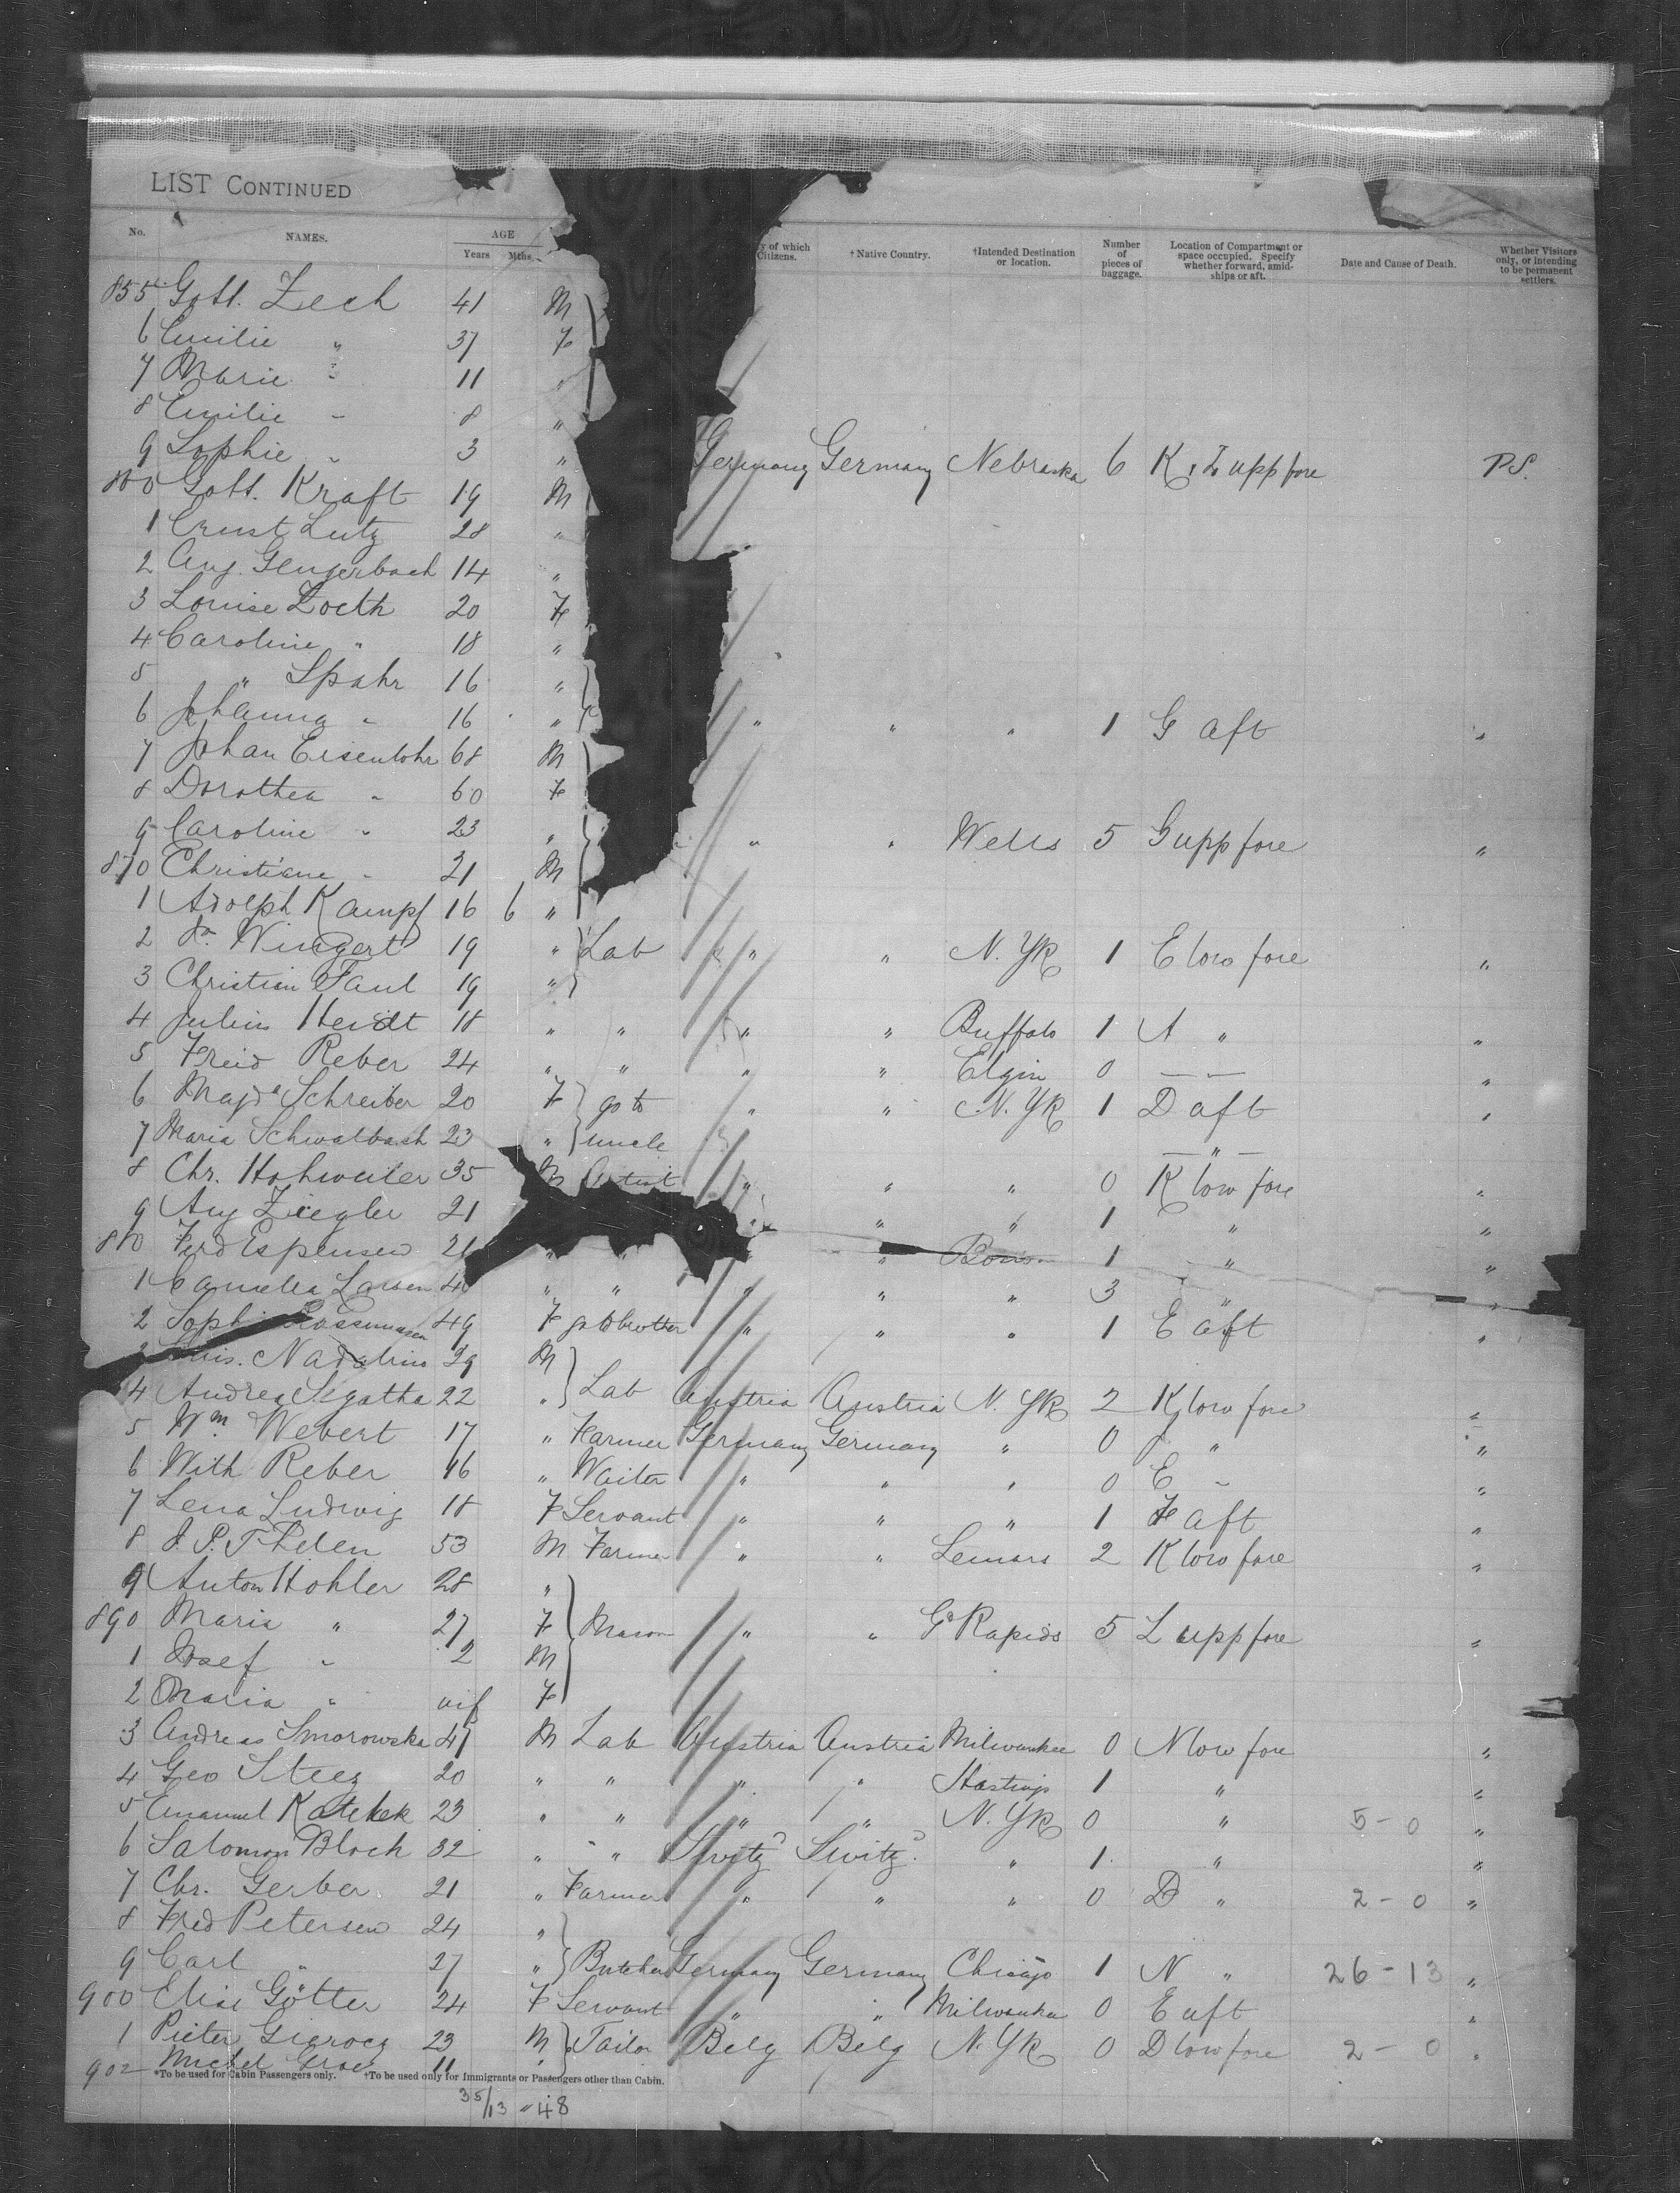 LIST CONTINUED
No. NAMES. AGE Years Mths. y of which Citizens. †Native Country. †Intended Destination or location. Number of pieces of baggage. Location of Compartment or space occupied. Specify whether forward, amid-ships or aft. Date and Cause of Death. Whether Visitors only, or intending to be permanent settlers.
855 Gott. Zech 41 M
6 Emilie " 37 F
7 Marie " 11 "
8 Emilie " 8 "
9 Sophie " 3 " Germany Germany Nebraska 6 K. Z upp fore P.S.
860 Gott. Kraft 19 M
1 Ernst Lutz 28 "
2 Aug. Gengerbach 14 "
3 Louise Zoeth 20 F
4 Caroline " 18 "
5 " Spahr 16 "
6 Johanna " 16 " " " " 1 G aft "
7 Johan Eisenlohr 68 M
8 Dorothea " 60 F
9 Caroline " 23 " " " Wells 5 G upp fore "
870 Christiane " 21 M
1 Adolph Kampf 16 6 "
2 Wingert 19 " Lab " " N. Yk 1 E low fore "
3 Christian Faul 19 "
4 Julius Heidt 18 " " " " Buffalo 1 A " "
5 Freid Reber 24 " " " " Elgin 0 — — "
6 Magda Schreiber 20 F go to " " N. Yk 1 D aft "
7 Maria Schwalbach 23 " uncle — " —
8 Chr. Hohweiler 35 M Artist " " " 0 K low fore "
9 Aug Ziegler 21 " " " 1 " "
880 Ferd Espensen 21 " " " 1 " "
1 Camella Larsen 4 " " " " " 3 " "
2 Soph Rossmussen 49 F go to brother " " " 1 E aft "
Nadalrino 29 M
4 Andrea Segatha 22 " Lab Austria Austria N. Yk 2 K low fore "
5 Wm. Webert 17 " Farmer Germany Germany " 0 " "
6 With Reber 16 " Waiter " " " 0 E " "
7 Lena Ludwig 18 F Servant " " " 1 F aft "
8 J. P. Thelen 53 M Farmer " " Lemars 2 K low fore "
9 Anton Hohler 28 "
890 Maria " 27 F Mason " " Gd Rapids 5 L upp fore "
1 Josef " 2 M
2 Maria " inf F
3 Andreas Smorowska 41 M Lab Austria Austria Milwaukee 0 N low fore "
4 Geo Steez 20 " " " " Hastings 1 " "
5 Emanuel Katelek 23 " " " " N. Yk 0 " 5 - 0 "
6 Salomon Bloch 32 " " Switz Switz. " 1 " "
7 Chr. Gerber 21 " Farmer " " " 0 D " 2 - 0 "
8 Fred Petersen 24 "
9 Carl " 27 " Butcher Germany Germany Chicago 1 N " 26 - 13 "
900 Elise Götter 24 F Servant " " Milwaukee 0 E aft "
1 Pieter Gierocz 23 M Tailor Belg Belg N. Yk 0 D low fore 2 - 0 "
902 Michel 11 "
*To be used for Cabin Passengers only. †To be used only for Immigrants or Passengers other than Cabin.
35/13 = 48